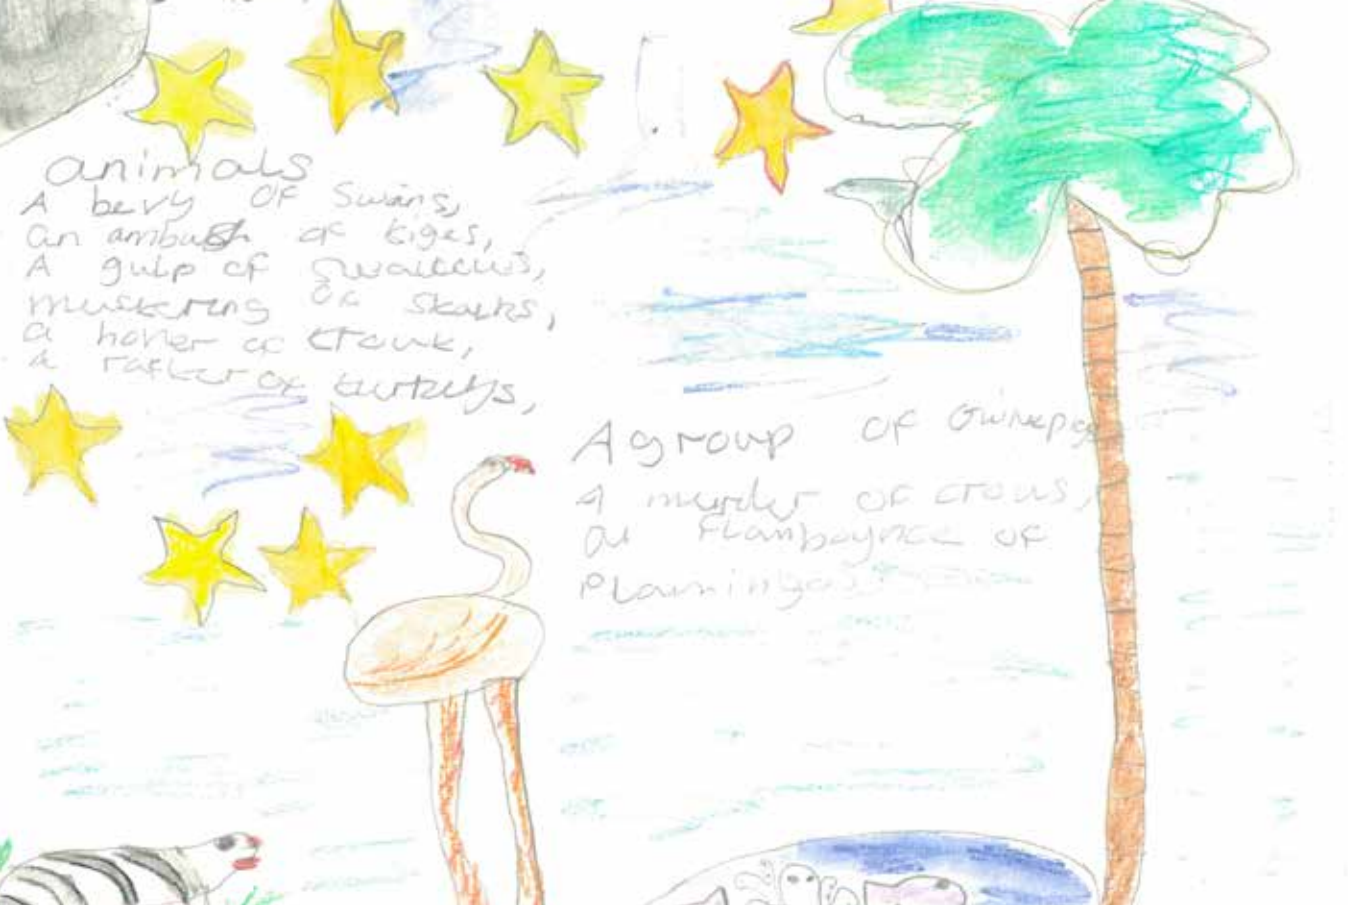 animals
A bevy of Swans,
an ambush of tiges,
A gulp of Swallows,
mustering of Skorks,
a hover of trout,
a rafter of turkeys,
A group of Guinepigs
A murder of crows,
a Flamboynce of
Flamingos